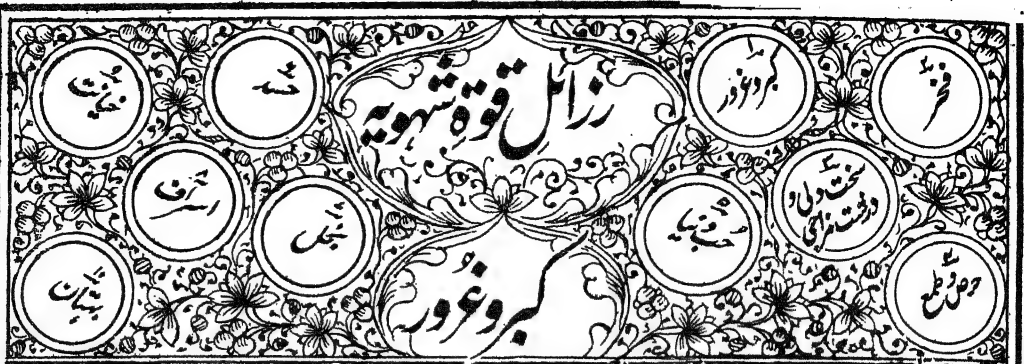 رزائل قوۃ شہویہ
کبر و غرور
فخر
کبر و غرور
سخت دلی و
درشت مزاجی
حرص و طمع
حب دنیا
حسد
خیانت
اسراف
بخل
بہتان